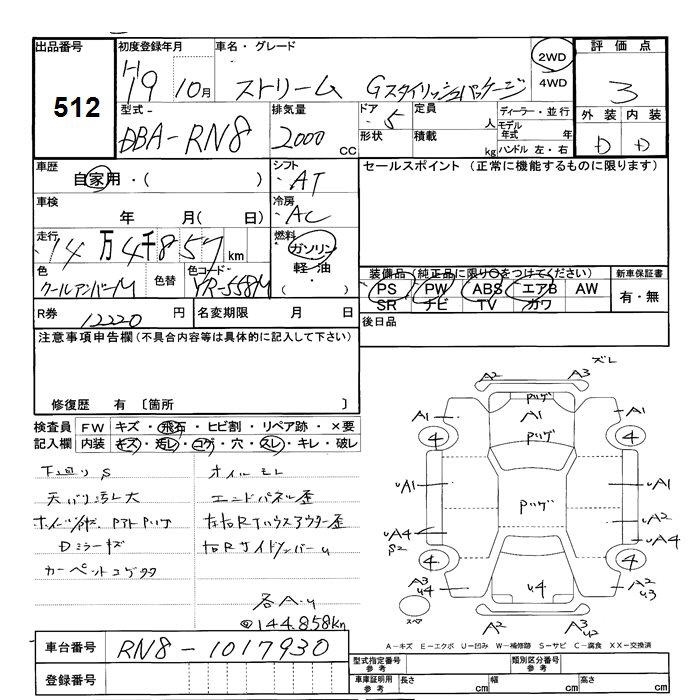 出品番号 初度登録年月 車名・グレード 評価点
512 H19 10月 ストリーム Gスタイリッシュパッケージ 2WD 4WD 3
型式 排気量 ドア 形状 定員 積載 ディーラー・並行 外装 内装
DBA-RN8 2000 CC 5 人 kg モデル年式 年 ハンドル 左・右 D D
車歴 自家用・( ) シフト AT セールスポイント (正常に機能するものに限ります)
車検 年 月( 日) 冷房 AC
走行 14万4千857km 燃料 ガソリン 軽・油 ( )
色 クールアンバーM 色替 色コード YR-558M
装備品 (純正品に限り○をつけてください) 新車保証書
PS PW ABS エアB AW 有・無
SR ナビ TV カワ
R券 12220 円 名変期限 月 日 後日品
注意事項申告欄 (不具合内容等は具体的に記入して下さい)
修復歴 有 〔箇所 〕
検査員 FW キズ・飛石・ヒビ割・リペア跡・×要
記入欄 内装 キズ・汚レ・コゲ・穴・スレ・キレ・破レ
下廻りS オイルモレ
天バリ汚レ大 エンドパネル歪
Dミラーキズ
カーペットコゲ
各A.u
@144.858km
ズレ
A2 A3
A1 A1 A1
4 4
uA1 uA1
uA2
uA4 uA4
S2
4 4
A3 u4 u4 A2 u3
A2 A3
A-キズ E-エクボ U-凹み W-補修跡 S-サビ C-腐食 XX-交換済
車台番号 RN8-1017930
登録番号
型式指定番号 参考 類別区分番号 参考
車庫証明用 参考 長さ cm 幅 cm 高さ cm